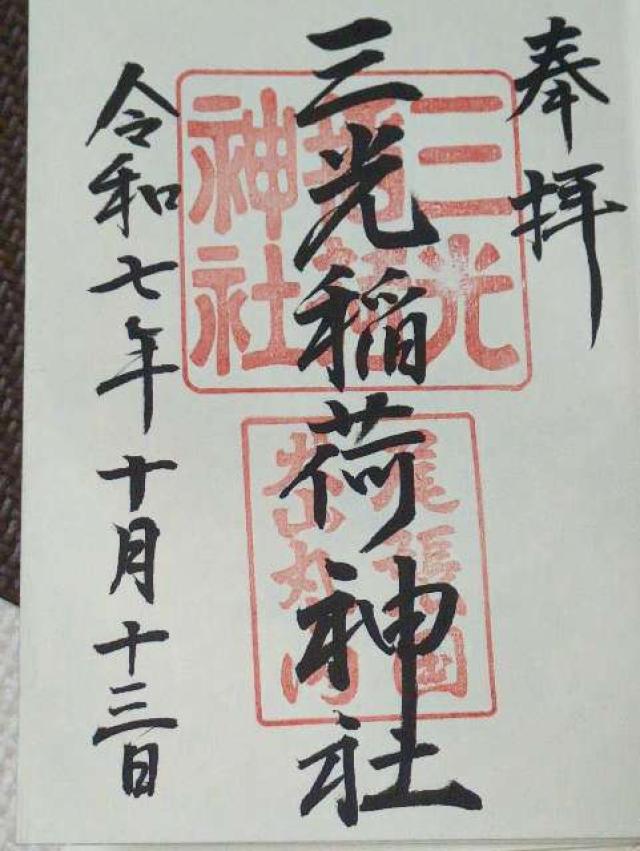 奉拝
三光稲荷神社
三光
稲荷
神社
尾張国
犬山丸之内
令和七年十月十三日